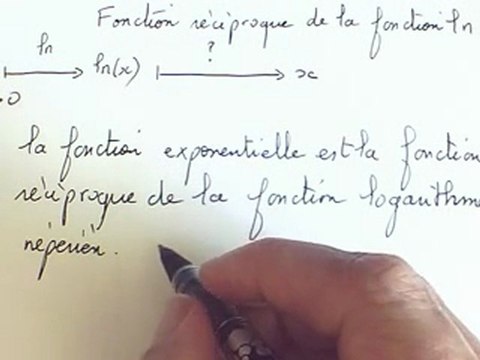 Fonction réciproque de la fonction ln
ln ?
ln(x) x
0
la fonction exponentielle est la fonction
réciproque de la fonction logarithme
népérien.